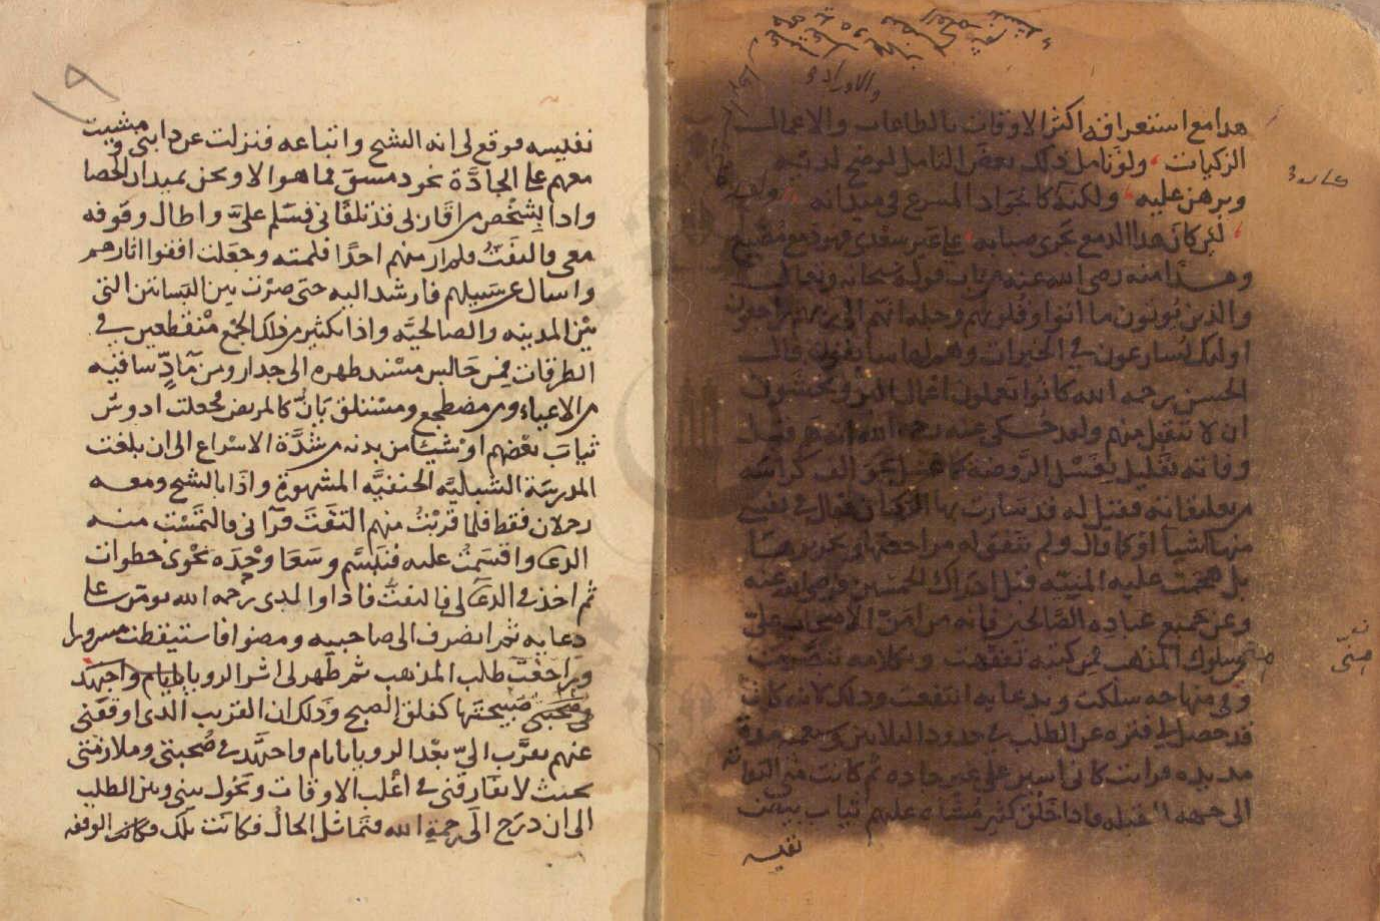 هذا مع استغراقه اكثر الاوقات بالطاعات والاعمال
الزكيات ولو تامل ذلك بعض التامل لوضح لديه
وبرهن عليه ولكنه كا لجواد المسرع في ميدانه
لئن كان هذا الدمع يجري صبابه على غير سعدى فهو دمع مضيع
وهذا منه رضي الله عنه من باب قوله سبحانه وتعالى
والذين يوتون ما اتوا وقلوبهم وجله انهم الى ربهم راجعون
اوليك يسارعون في الخيرات وهم لها سابقون قال
الحسن رحمه الله كانوا يعملون اعمال البر ويخشون
ان لا تتقبل منهم ولقد حكى عنه رحمه الله انه هم قبل
وفاته بقليل بغسل الروضه كما غسل نحو الف كراسه
من تعليقاته فقيل له قد سارت بها الركبان فقال في نفسي
منها اشيا او كما قال ولم تتفق له مراجعتها وتحريرها
بل هجمت عليه المنيه قبل ادراك الخمسين فرضي الله عنه
وعن جميع عباده الصالحين فانه من امن الاصحاب علي
وسلوك المذهب فمن كتبه تفقهت وبكلامه تبصرت
وفي منهاجه سلكت وبدعايه انتفعت وذلك لانه كان
قد حصل لي فتره عن الطلب في حدود الثلاثين
مديده فرايت كاني اسير على غير جاده ثم كانت مني التفاته
الى جهه القبله واذا خلق كثير مشاه عليهم ثياب بيض
نفيسه
نفيسه فوقع لي انه الشيخ واتباعه فنزلت عن دابتي ومشيت
معهم على الجادّة نحو دمشق فما هو الا ونحن بميدان الحصا
واذا بشخص من اقاربي قد تلقاني فسلم عليّ واطال وقوفه
معي فالتفت فلم ار منهم احدًا فلمته وجعلت اقفوا اثارهم
واسال عن سبيلهم فارشد اليه حتى صرت بين البساتين التي
بين المدينه والصالحيّه واذا بكثير من ذلك الجمع منقطعين في
الطرقات فمن جالس مسند ظهره الى جدار ومن مادّ ساقيه
من الاعياء ومن مضطجع ومستلق يانّ كالمريض فجعلت ادوس
ثياب بعضهم او شيئا من بدنه من شدّة الاسراع الى ان بلغت
المدرسة الشبليّه الحنفيّه المشهورة واذا بالشيخ ومعه
رجلان فقط فلما قربت منهم التفت فرآني فالتمست منه
الدعا واقسمت عليه فتبسم وسعا وحده نحوي خطوات
ثم اخذ في الدعا لي فالتفت فاذا والدي رحمه الله يومن على
دعايه ثم انصرف الى صاحبيه ومضوا فاستيقظت مسرورا
وراجعت طلب المذهب ثم ظهر لي اثر الرويا بايام واجتهد
في صحبتي صبيحتها كفلق الصبح وذلك ان القريب الذي اوقفني
عنهم تقرّب اليّ بعد الرويا بايام واجتهد في صحبتي وملازمتي
بحيث لا يفارقني في اغلب الاوقات وتحول بيني وبين الطلب
الى ان درج الى رحمة الله وتماثل الحال فكانت تلك مكان الوقفه